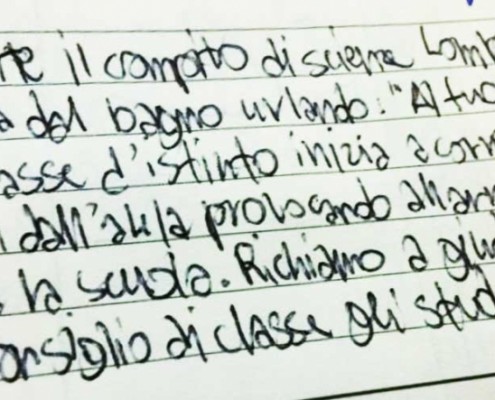 il compito di scienze Lomb
dal bagno urlando: "Al fuo
asse d'istinto inizia a corr
dall'aula provocando allarm
la scuola. Richiamo a giu
onsiglio di classe gli stud